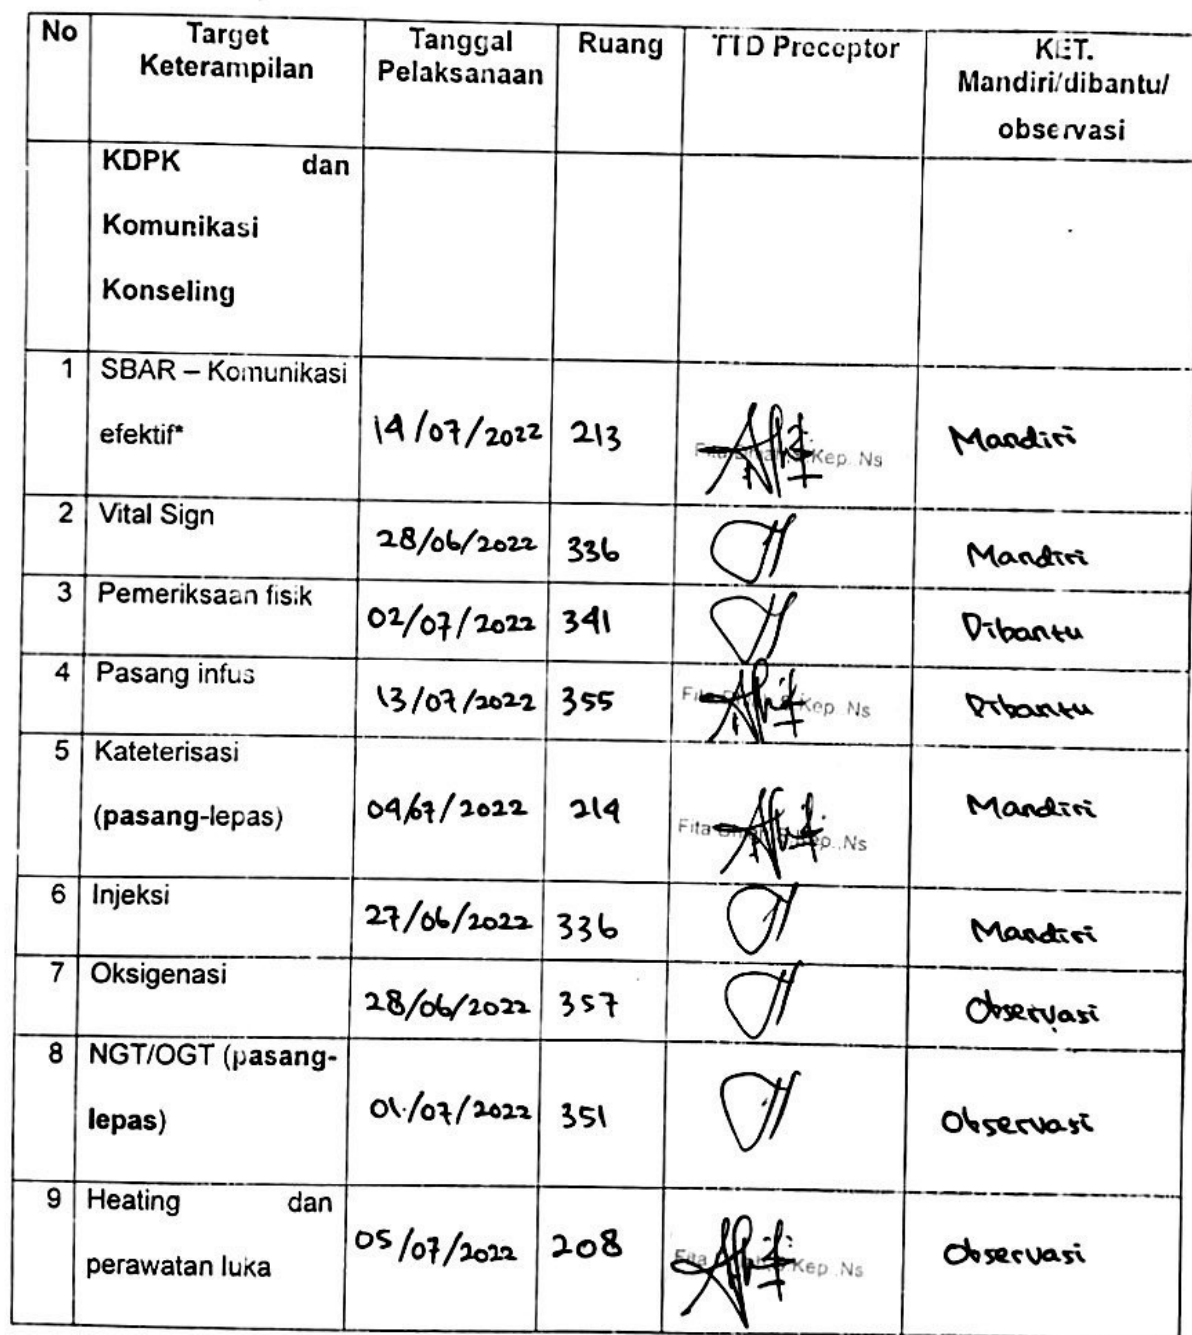 No Target Keterampilan Tanggal Pelaksanaan Ruang TTD Preceptor KET. Mandiri/dibantu/ observasi
KDPK dan
Komunikasi
Konseling
1 SBAR – Komunikasi
efektif* 14/07/2022 213 Fita Kep. Ns Mandiri
2 Vital Sign 28/06/2022 336 Mandiri
3 Pemeriksaan fisik 02/07/2022 341 Dibantu
4 Pasang infus 13/07/2022 355 Fita Kep. Ns Dibantu
5 Kateterisasi
(pasang-lepas) 04/07/2022 214 Fita Kep.,Ns Mandiri
6 Injeksi 27/06/2022 336 Mandiri
7 Oksigenasi 28/06/2022 357 Observasi
8 NGT/OGT (pasang-
lepas) 01/07/2022 351 Observasi
9 Heating dan
perawatan luka 05/07/2022 208 Fita Kep. Ns Observasi